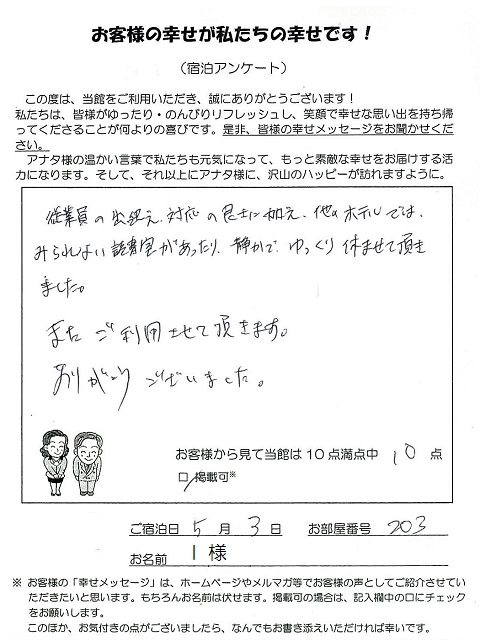 お客様の幸せが私たちの幸せです！
（宿泊アンケート）
この度は、当館をご利用いただき、誠にありがとうございます！
私たちは、皆様がゆったり・のんびりリフレッシュし、笑顔で幸せな思い出を持ち帰
ってくださることが何よりの喜びです。是非、皆様の幸せメッセージをお聞かせくだ
さい。
アナタ様の温かい言葉で私たちも元気になって、もっと素敵な幸せをお届けする活
力になります。そして、それ以上にアナタ様に、沢山のハッピーが訪れますように。
従業員の出迎え、対応の良さに加え、他のホテルでは、
みられない読書室があったり、静かで、ゆっくり休ませて頂き
ました。
またご利用させて頂きます。
ありがとうございました。
お客様から見て当館は10点満点中 10 点
□掲載可※
ご宿泊日 5 月 3 日 お部屋番号 203
お名前 I 様
※ お客様の「幸せメッセージ」は、ホームページやメルマガ等でお客様の声としてご紹介させてい
ただきたいと思います。もちろんお名前は伏せます。掲載可の場合は、記入欄中の口にチェック
をお願いします。
このほか、お気付きの点がございましたら、なんでもお書き添えいただければ幸いです。